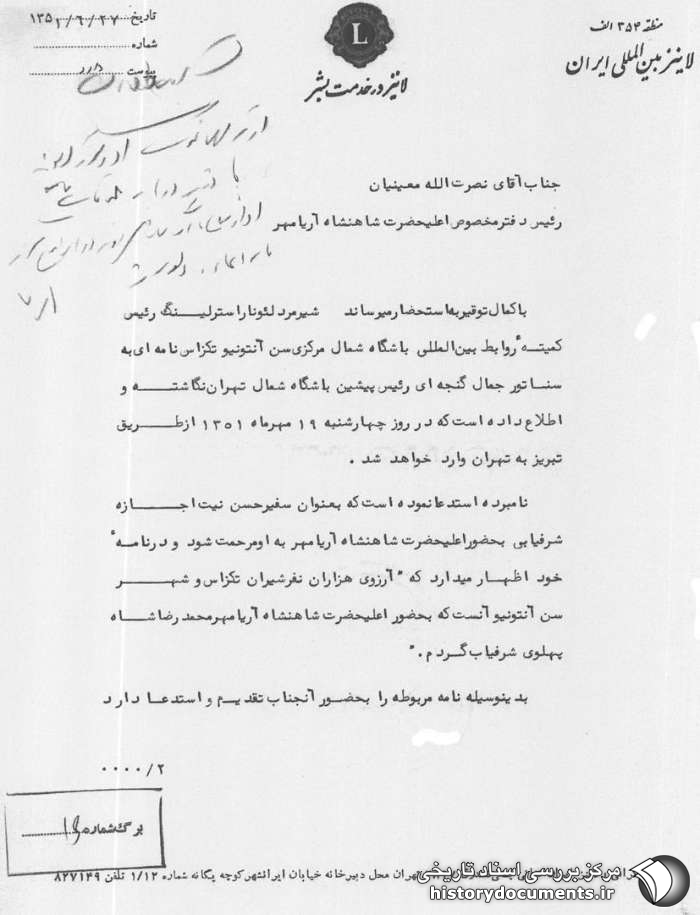 منطقه ۳۵۴ الف
لاینز بین المللی ایران
L
لاینز در خدمت بشر
تاریخ ۱۳۵۱/۶/۲۷
شماره
پیوست دارد
جناب آقای نصرت الله معینیان
رئیس دفتر مخصوص اعلیحضرت شاهنشاه آریامهر
با کمال توقیر به استحضار میرساند شیرمرد لئونارا سترلینگ رئیس
کمیته روابط بین‌المللی باشگاه شمال مرکزی سن آنتونیو تکزاس نامه ای به
سناتور جمال گنجه ای رئیس پیشین باشگاه شمال تهران نگاشته و
اطلاع داده است که در روز چهارشنبه ۱۹ مهرماه ۱۳۵۱ از طریق
تبریز به تهران وارد خواهد شد .
نامبرده استدعا نموده است که بعنوان سفیر حسن نیت اجازه
شرفیابی بحضور اعلیحضرت شاهنشاه آریامهر به او مرحمت شود و در نامهٔ
خود اظهار میدارد که "آرزوی هزاران نفر شیران تکزاس و شهر
سن آنتونیو آنست که بحضور اعلیحضرت شاهنشاه آریامهر محمد رضا شاه
پهلوی شرفیاب گردم ."
بدینوسیله نامه مربوطه را بحضور آنجناب تقدیم و استدعا دارد
۰۰۰۰/۲
برگ شماره ۱۳
تهران محل دبیرخانه خیابان ایرانشهر کوچه یگانه شماره ۱/۱۲ تلفن ۸۲۷۱۴۹
مرکز بررسی اسناد تاریخی
historydocuments.ir